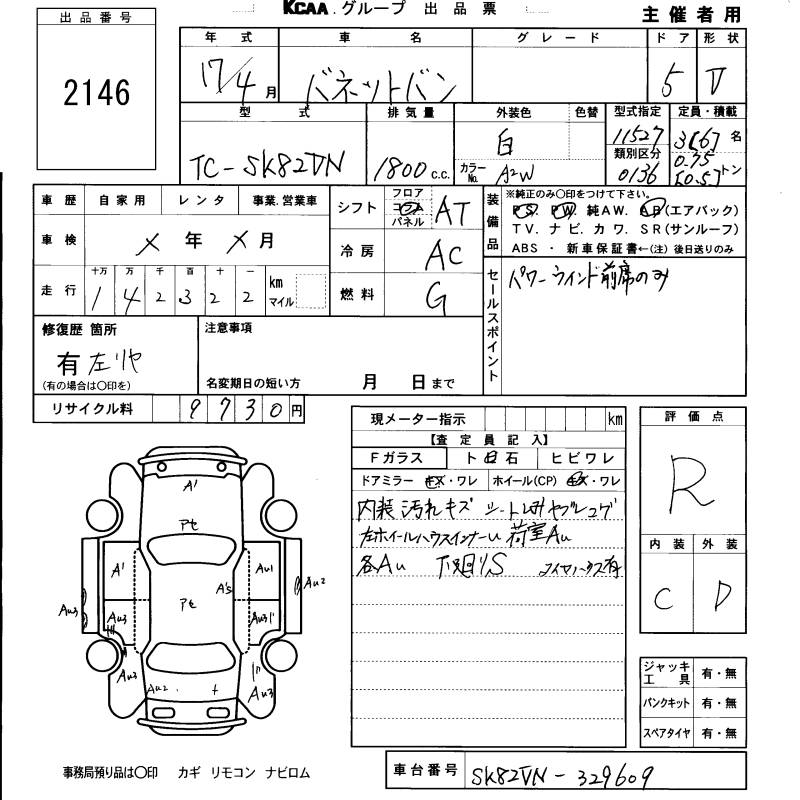 KCAA.グループ 出品票
主催者用
出品番号
2146
年式 車名 グレード ドア 形状
17/4月 バネットバン 5 V
型式 排気量 外装色 色替 型式指定 定員・積載
TC-SK82VN 1800 c.c. 白 11527 3[6]名
カラーNo. A2W 類別区分 0136 0.75 [0.5]トン
車歴 自家用 レンタ 事業.営業車
シフト フロア コラム パネル AT
装備品 ※純正のみ〇印をつけて下さい。
PS. PW. 純AW. AB(エアバック)
TV. ナビ. カワ. SR(サンルーフ)
ABS ・ 新車保証書←(注) 後日送りのみ
車検 メ年 メ月
冷房 AC
走行 十万 万 千 百 十 一 km マイル
1 4 2 3 2 2
燃料 G
セールスポイント
パワーウインド前席のみ
修復歴 箇所
有 左リヤ
(有の場合は〇印を)
注意事項
名変期日の短い方 月 日まで
リサイクル料 9730円
現メーター指示 km
【査定員記入】
Fガラス ト白石 ヒビワレ
ドアミラー キズ・ワレ ホイール(CP) キズ・ワレ
内装 汚れ キズ シートしみ ヤブレ コゲ
左ホイールハウスインナーU 荷室AU
各AU 下回りS
評価点
R
内装 外装
C D
A1
アセ
A1 A's Au1
アセ
Au3 Au3 Au31 Au2
Au3 Au2 + Au3
ジャッキ工具 有・無
パンクキット 有・無
スペアタイヤ 有・無
事務局預り品は〇印 カギ リモコン ナビロム
車台番号 SK82VN-329609